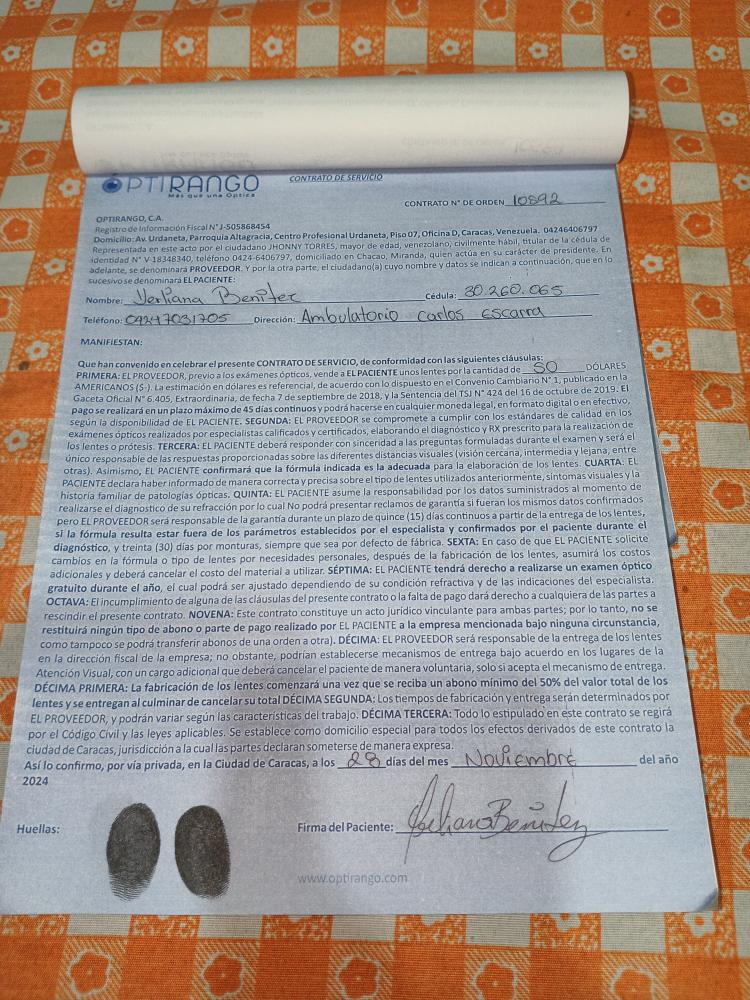 OPTIRANGO
Más que una Óptica
CONTRATO DE SERVICIO
CONTRATO N° DE ORDEN 10892
OPTIRANGO, C.A.
Registro de Información Fiscal N° J-505868454
Domicilio: Av. Urdaneta, Parroquia Altagracia, Centro Profesional Urdaneta, Piso 07, Oficina D, Caracas, Venezuela. 04246406797
Representada en este acto por el ciudadano JHONNY TORRES, mayor de edad, venezolano, civilmente hábil, titular de la cédula de
identidad N° V-18348340, teléfono 0424-6406797, domiciliado en Chacao, Miranda, quien actúa en su carácter de presidente. En
adelante, se denominará PROVEEDOR. Y por la otra parte, el ciudadano(a) cuyo nombre y datos se indican a continuación, que en lo
sucesivo se denominará EL PACIENTE:
Nombre: Yerliana Benitez Cédula: 30.260.065
Teléfono: 04247031705 Dirección: Ambulatorio Carlos Escarra
MANIFIESTAN:
Que han convenido en celebrar el presente CONTRATO DE SERVICIO, de conformidad con las siguientes cláusulas:
PRIMERA: EL PROVEEDOR, previo a los exámenes ópticos, vende a EL PACIENTE unos lentes por la cantidad de 50 DÓLARES
AMERICANOS ($-). La estimación en dólares es referencial, de acuerdo con lo dispuesto en el Convenio Cambiario N° 1, publicado en la
Gaceta Oficial N° 6.405, Extraordinaria, de fecha 7 de septiembre de 2018, y la Sentencia del TSJ N° 424 del 16 de octubre de 2019. El
pago se realizará en un plazo máximo de 45 días continuos y podrá hacerse en cualquier moneda legal, en formato digital o en efectivo,
según la disponibilidad de EL PACIENTE. SEGUNDA: EL PROVEEDOR se compromete a cumplir con los estándares de calidad en los
exámenes ópticos realizados por especialistas calificados y certificados, elaborando el diagnóstico y RX prescrito para la realización de
los lentes o prótesis. TERCERA: EL PACIENTE deberá responder con sinceridad a las preguntas formuladas durante el examen y será el
único responsable de las respuestas proporcionadas sobre las diferentes distancias visuales (visión cercana, intermedia y lejana, entre
otras). Asimismo, EL PACIENTE confirmará que la fórmula indicada es la adecuada para la elaboración de los lentes. CUARTA: EL
PACIENTE declara haber informado de manera correcta y precisa sobre el tipo de lentes utilizados anteriormente, síntomas visuales y la
historia familiar de patologías ópticas. QUINTA: EL PACIENTE asume la responsabilidad por los datos suministrados al momento de
realizarse el diagnostico de su refracción por lo cual No podrá presentar reclamos de garantía si fueran los mismos datos confirmados
pero EL PROVEEDOR será responsable de la garantía durante un plazo de quince (15) días continuos a partir de la entrega de los lentes,
si la fórmula resulta estar fuera de los parámetros establecidos por el especialista y confirmados por el paciente durante el
diagnóstico, y treinta (30) días por monturas, siempre que sea por defecto de fábrica. SEXTA: En caso de que EL PACIENTE solicite
cambios en la fórmula o tipo de lentes por necesidades personales, después de la fabricación de los lentes, asumirá los costos
adicionales y deberá cancelar el costo del material a utilizar. SÉPTIMA: EL PACIENTE tendrá derecho a realizarse un examen óptico
gratuito durante el año, el cual podrá ser ajustado dependiendo de su condición refractiva y de las indicaciones del especialista.
OCTAVA: El incumplimiento de alguna de las cláusulas del presente contrato o la falta de pago dará derecho a cualquiera de las partes a
rescindir el presente contrato. NOVENA: Este contrato constituye un acto jurídico vinculante para ambas partes; por lo tanto, no se
restituirá ningún tipo de abono o parte de pago realizado por EL PACIENTE a la empresa mencionada bajo ninguna circunstancia,
como tampoco se podrá transferir abonos de una orden a otra). DÉCIMA: EL PROVEEDOR será responsable de la entrega de los lentes
en la dirección fiscal de la empresa; no obstante, podrían establecerse mecanismos de entrega bajo acuerdo en los lugares de la
Atención Visual, con un cargo adicional que deberá cancelar el paciente de manera voluntaria, solo si acepta el mecanismo de entrega.
DÉCIMA PRIMERA: La fabricación de los lentes comenzará una vez que se reciba un abono mínimo del 50% del valor total de los
lentes y se entregan al culminar de cancelar su total DÉCIMA SEGUNDA: Los tiempos de fabricación y entrega serán determinados por
EL PROVEEDOR, y podrán variar según las características del trabajo. DÉCIMA TERCERA: Todo lo estipulado en este contrato se regirá
por el Código Civil y las leyes aplicables. Se establece como domicilio especial para todos los efectos derivados de este contrato la
ciudad de Caracas, jurisdicción a la cual las partes declaran someterse de manera expresa.
Así lo confirmo, por vía privada, en la Ciudad de Caracas, a los 28 días del mes Noviembre del año
2024
Huellas:
Firma del Paciente: Yerliana Benitez
www.optirango.com